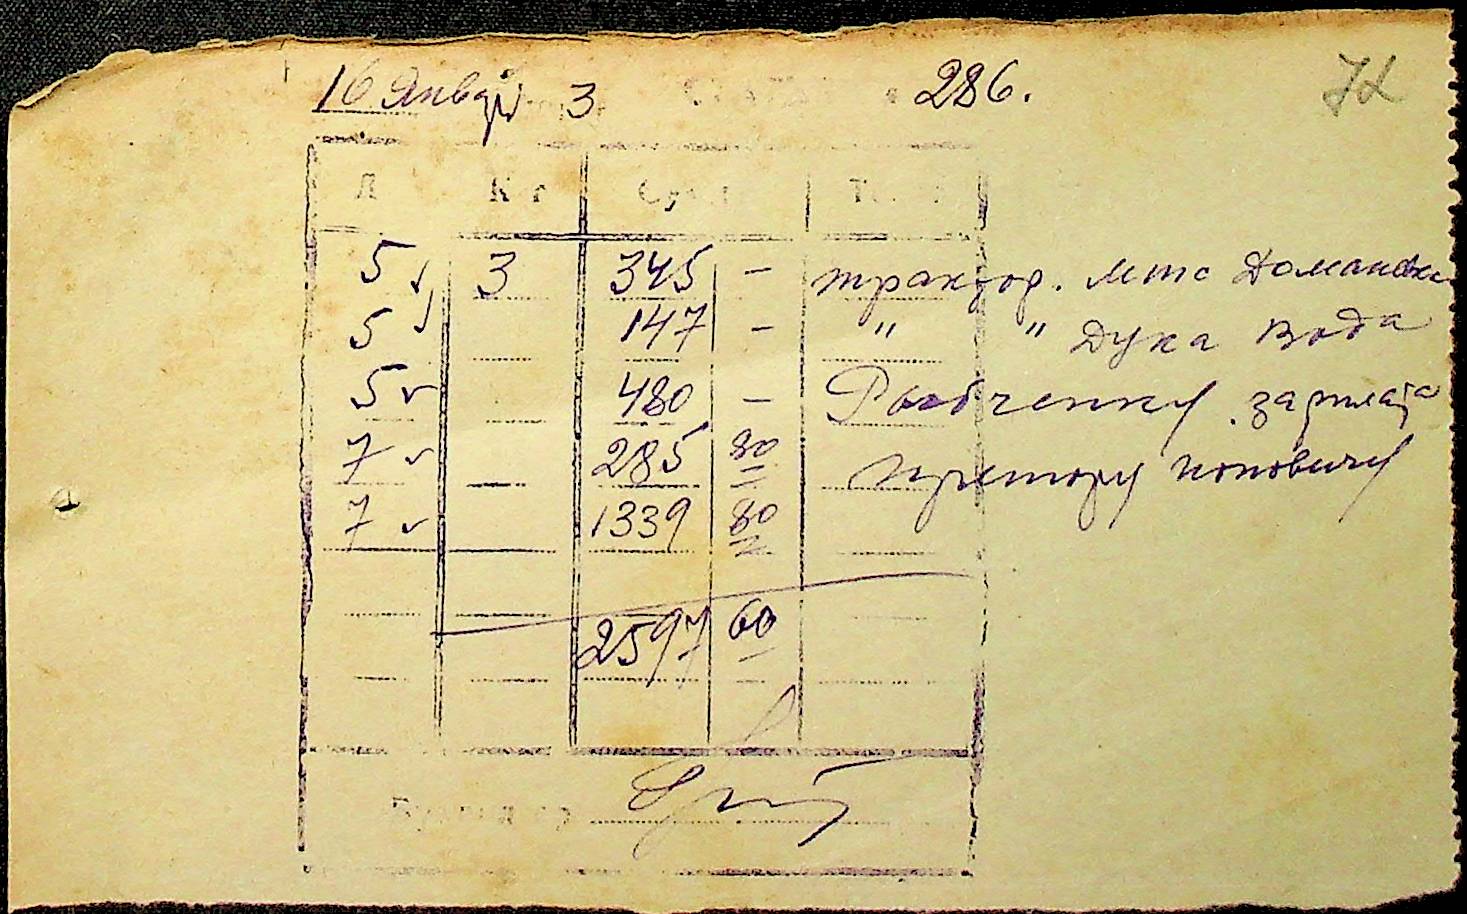 16 Январ 3 286.
Д К-т Сум Т
5 3 345 — трактор. Мтс Доманевка
5 147 — " " Дука Вода
5 480 — Рыбченку зарплата
7 285 80 претору Поповичу
7 1339 80
2597 60